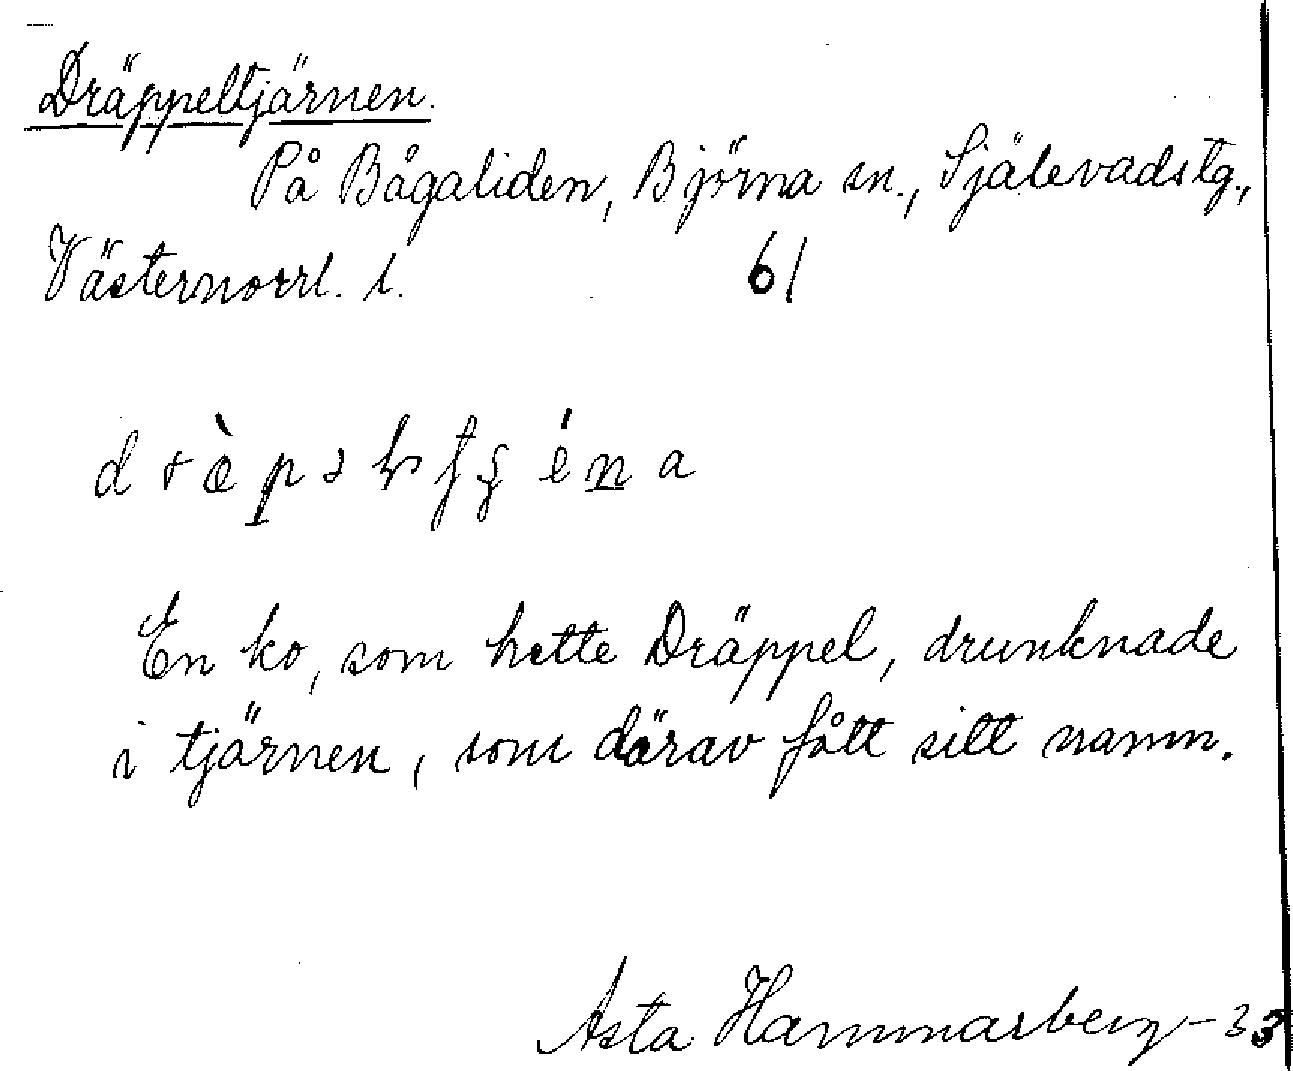 Dräppeltjärnen.
På Bågaliden, Björna sn., Själevads tg.,
Västernorrl. l. 61
En ko, som hette Dräppel, drunknade
i tjärnen, som därav fått sitt namn.
Asta Hammarberg - 33